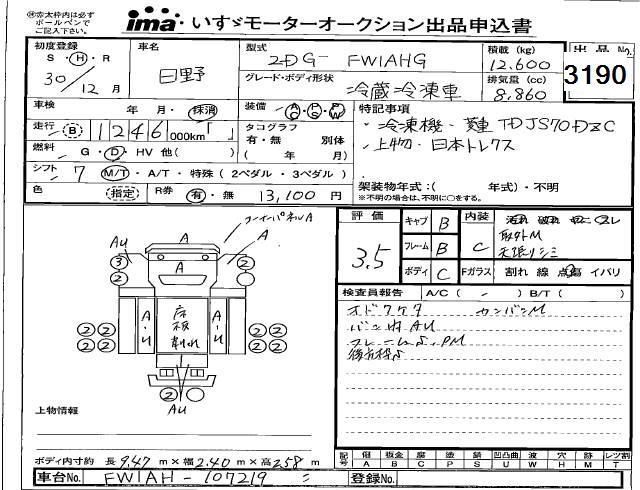 ㊟赤太枠内は必ず
ボールペンで
ご記入下さい。
ima いすゞモーターオークション出品申込書
初度登録 車名 型式 積載(kg) 出品No.
S・H・R 日野 2DG- FW1AHG 12,600 3190
30/12月 グレード・ボディ形状 冷蔵冷凍車 排気量(cc) 8,860
車検 年 月・抹消 装備 A/C P/S P/W 特記事項
走行 B 1246 000km「 」 タコグラフ ・冷凍機・菱重 TDJS70DZC
燃料 G・D・HV 他( ) 有・無 別体 ・上物・日本トレクス
( 年 月)
シフト 7 M/T・A/T・特殊(2ペダル・3ペダル) 架装物年式:( 年式)・不明
色 指定 R券 有・無 13,100 円 ※不明の場合は、不明に○をする。
評価 キャブ B 内装
3.5 フレーム B C 取外M
ボディ C Fガラス 割れ 線 点傷 イバリ
天張りシミ
コーナーパネルA
AU A
A
3 2 2
2 2 2 2
2 2 2 2
A・U 床板 削れ A・U
2
AU
検査員報告 A/C( - )B/T( )
カンバンM
バン内AU
上物情報
ボディ内寸約 長9.47m×幅2.40m×高2.58m
記号 個 板金 腐 塗 錆 凹凸曲 波 穴 跡 レツ割
A B C P S U W H M T
車台No. FW1AH-107219 登録No.